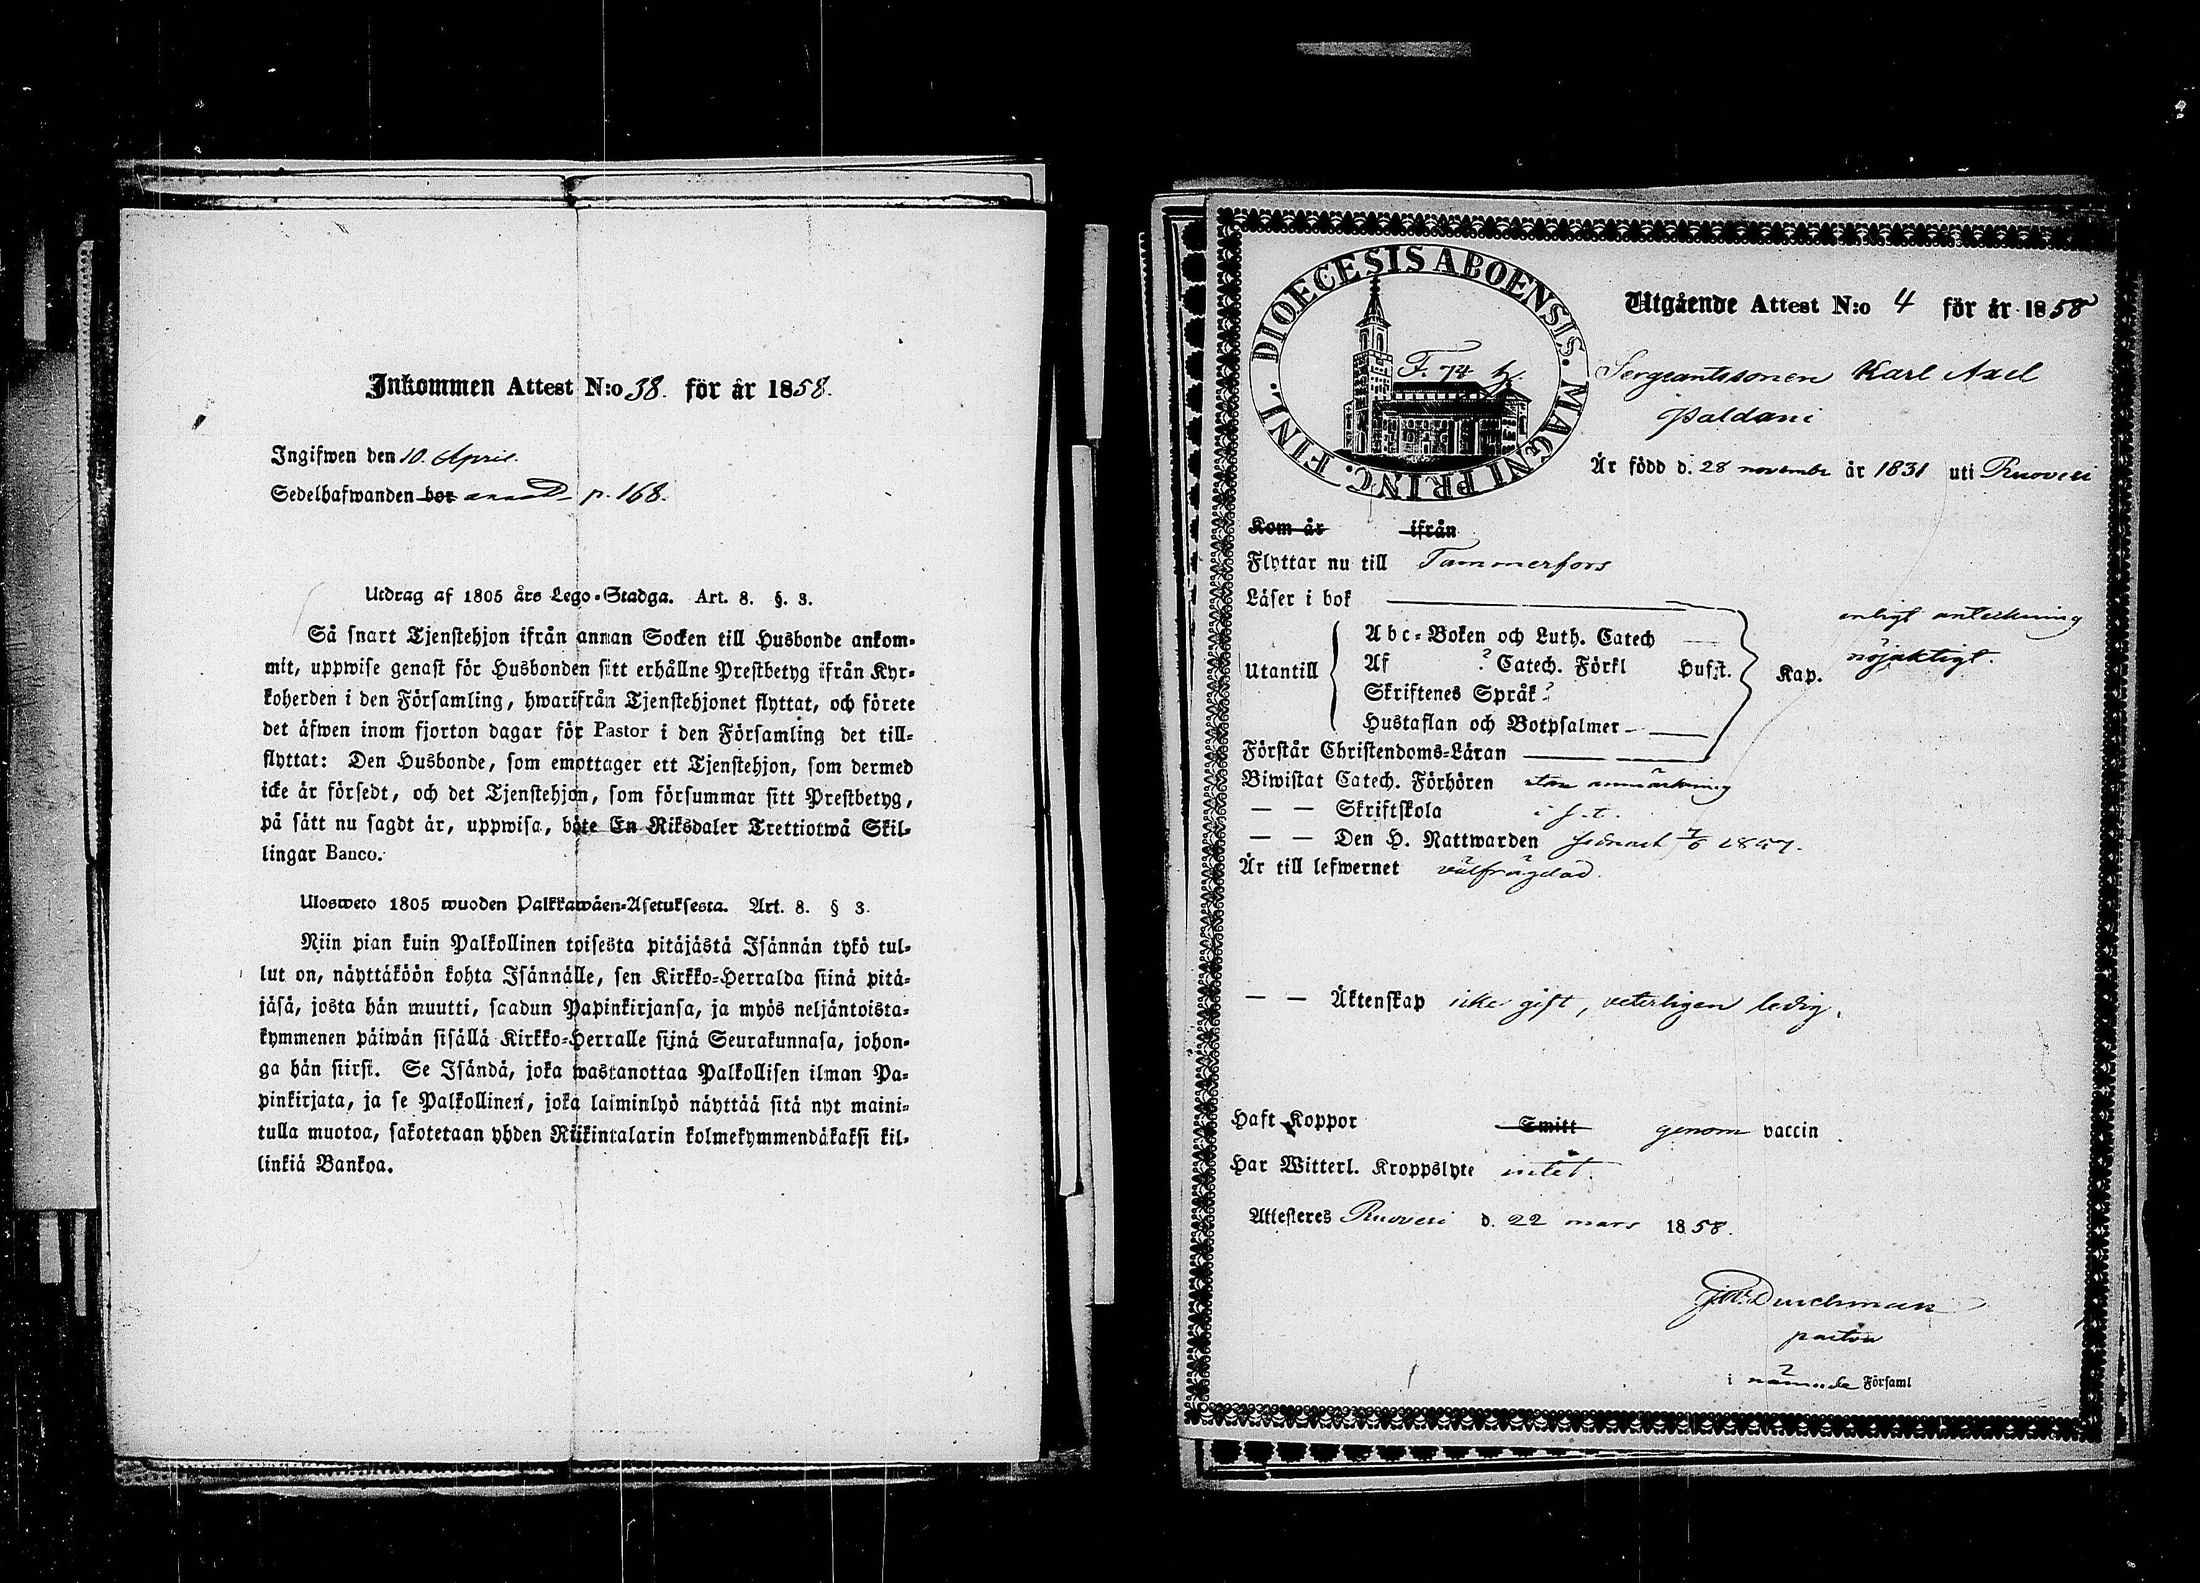 Inkommen Attest N:o 38. för år 1858.
Ingifwen den 10. April.
Sedelhafwanden bor p. 168.
Utdrag af 1805 års Lego-Stadga. Art. 8. §. 3.
Så snart Tjenstehjon ifrån annan Socken till Husbonde ankom-
mit, uppwise genast för Husbonden sitt erhållne Prestbetyg ifrån Kyr-
koherden i den Församling, hwarifrån Tjenstehjonet flyttat, och förete
det äfwen inom fjorton dagar för Pastor i den Församling det till-
flyttat: Den Husbonde, som emottager ett Tjenstehjon, som dermed
icke är försedt, och det Tjenstehjon, som försummar sitt Prestbetyg,
på sätt nu sagdt är, uppwisa, böte En Riksdaler Trettiotwå Skil-
lingar Banco.
Ulosweto 1805 wuoden Palkkawäen-Asetuksesta. Art. 8. § 3.
Niin pian kuin Palkollinen toisesta pitäjästä Isännän tykö tul-
lut on, näyttäköön kohta Isännälle, sen Kirkko-Herralda siinä pitä-
jäsä, josta hän muutti, saadun Papinkirjansa, ja myös neljäntoista-
kymmenen päiwän sisällä Kirkko-Herralle sijnä Seurakunnasa, johon-
ga hän siirsi. Se Isändä, joka wastanottaa Palkollisen ilman Pa-
pinkirjata, ja se Palkollinen, joka laiminlyö näyttää sitä nyt maini-
tulla muotoa, sakotetaan yhden Riikintalarin kolmekymmendäkaksi kil-
linkiä Bankoa.
DIOECESIS ABOENSIS. MAGNI PRINC. FINL.
F. 74
Utgående Attest N:o 4 för år 1858
Sergeantssonen Karl Axel
Paldani
Är född d. 28 november år 1831 uti Ruovesi
Kom år ifrån
Flyttar nu till Tammerfors
Läser i bok
enligt anteckning
nöjaktigt.
Utantill
Abc-Boken och Luth. Catech
Af Catech. Förkl Husst. Kap.
Skriftenes Språk
Hustaflan och Botpsalmer
Förstår Christendoms-Läran
Biwistat Catech. Förhören utan anmärkning
— — Skriftskola
— — Den H. Nattwarden senast 7/6 1857.
Är till lefwernet välfrägdad.
— — Äktenskap icke gift, veterligen ledig.
Haft Koppor Smitt genom vaccin
Har Witterl. Kroppslyte intet.
Attesteres Ruovesi d. 22 mars 1858.
Durchman
pastor
i nämnde Församl